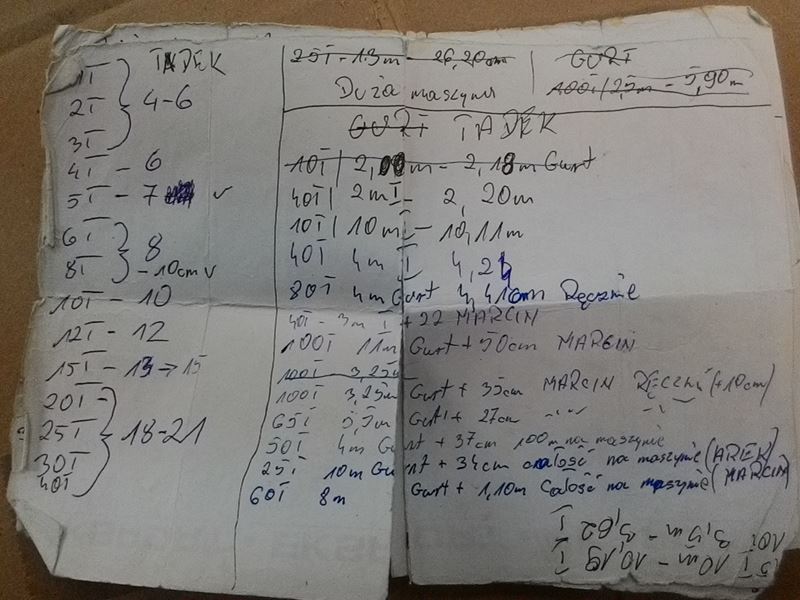 TADEK
1T
2T } 4-6
3T
4T - 6
5T - 7 v
6T } 8
8T - 10cm v
10T - 10
12T - 12
15T - 13 → 15
20T
25T } 18-21
30T
40T
25T - 13m - 26,20cm
Duża maszyna
GURT
100T / 2,5m - 5,90m
GURT TADEK
10T | 2,00m - 2,18m Gurt
40T | 2m I - 2,20m
10T | 10m I - 10,11m
40T 4m I 4,21
80T 4m Gurt 4,41cm Ręcznie
40T - 3m I + 22 MARCIN
100T 11m Gurt + 50cm MARCIN
100T 3,25m
100T 3,25m Gurt + 35cm MARCIN RĘCZNIE (+10cm)
65T 5,5m Gurt + 27cm " " "
50T 4m Gurt + 37cm 100m na maszynie
25T 10m Gurt + 34cm całość na maszynie (AREK)
60T 8m Gurt + 1,10m Całość na maszynie (MARCIN)
15T 10m - 10,19 I
10T 3,5m - 3,62 I